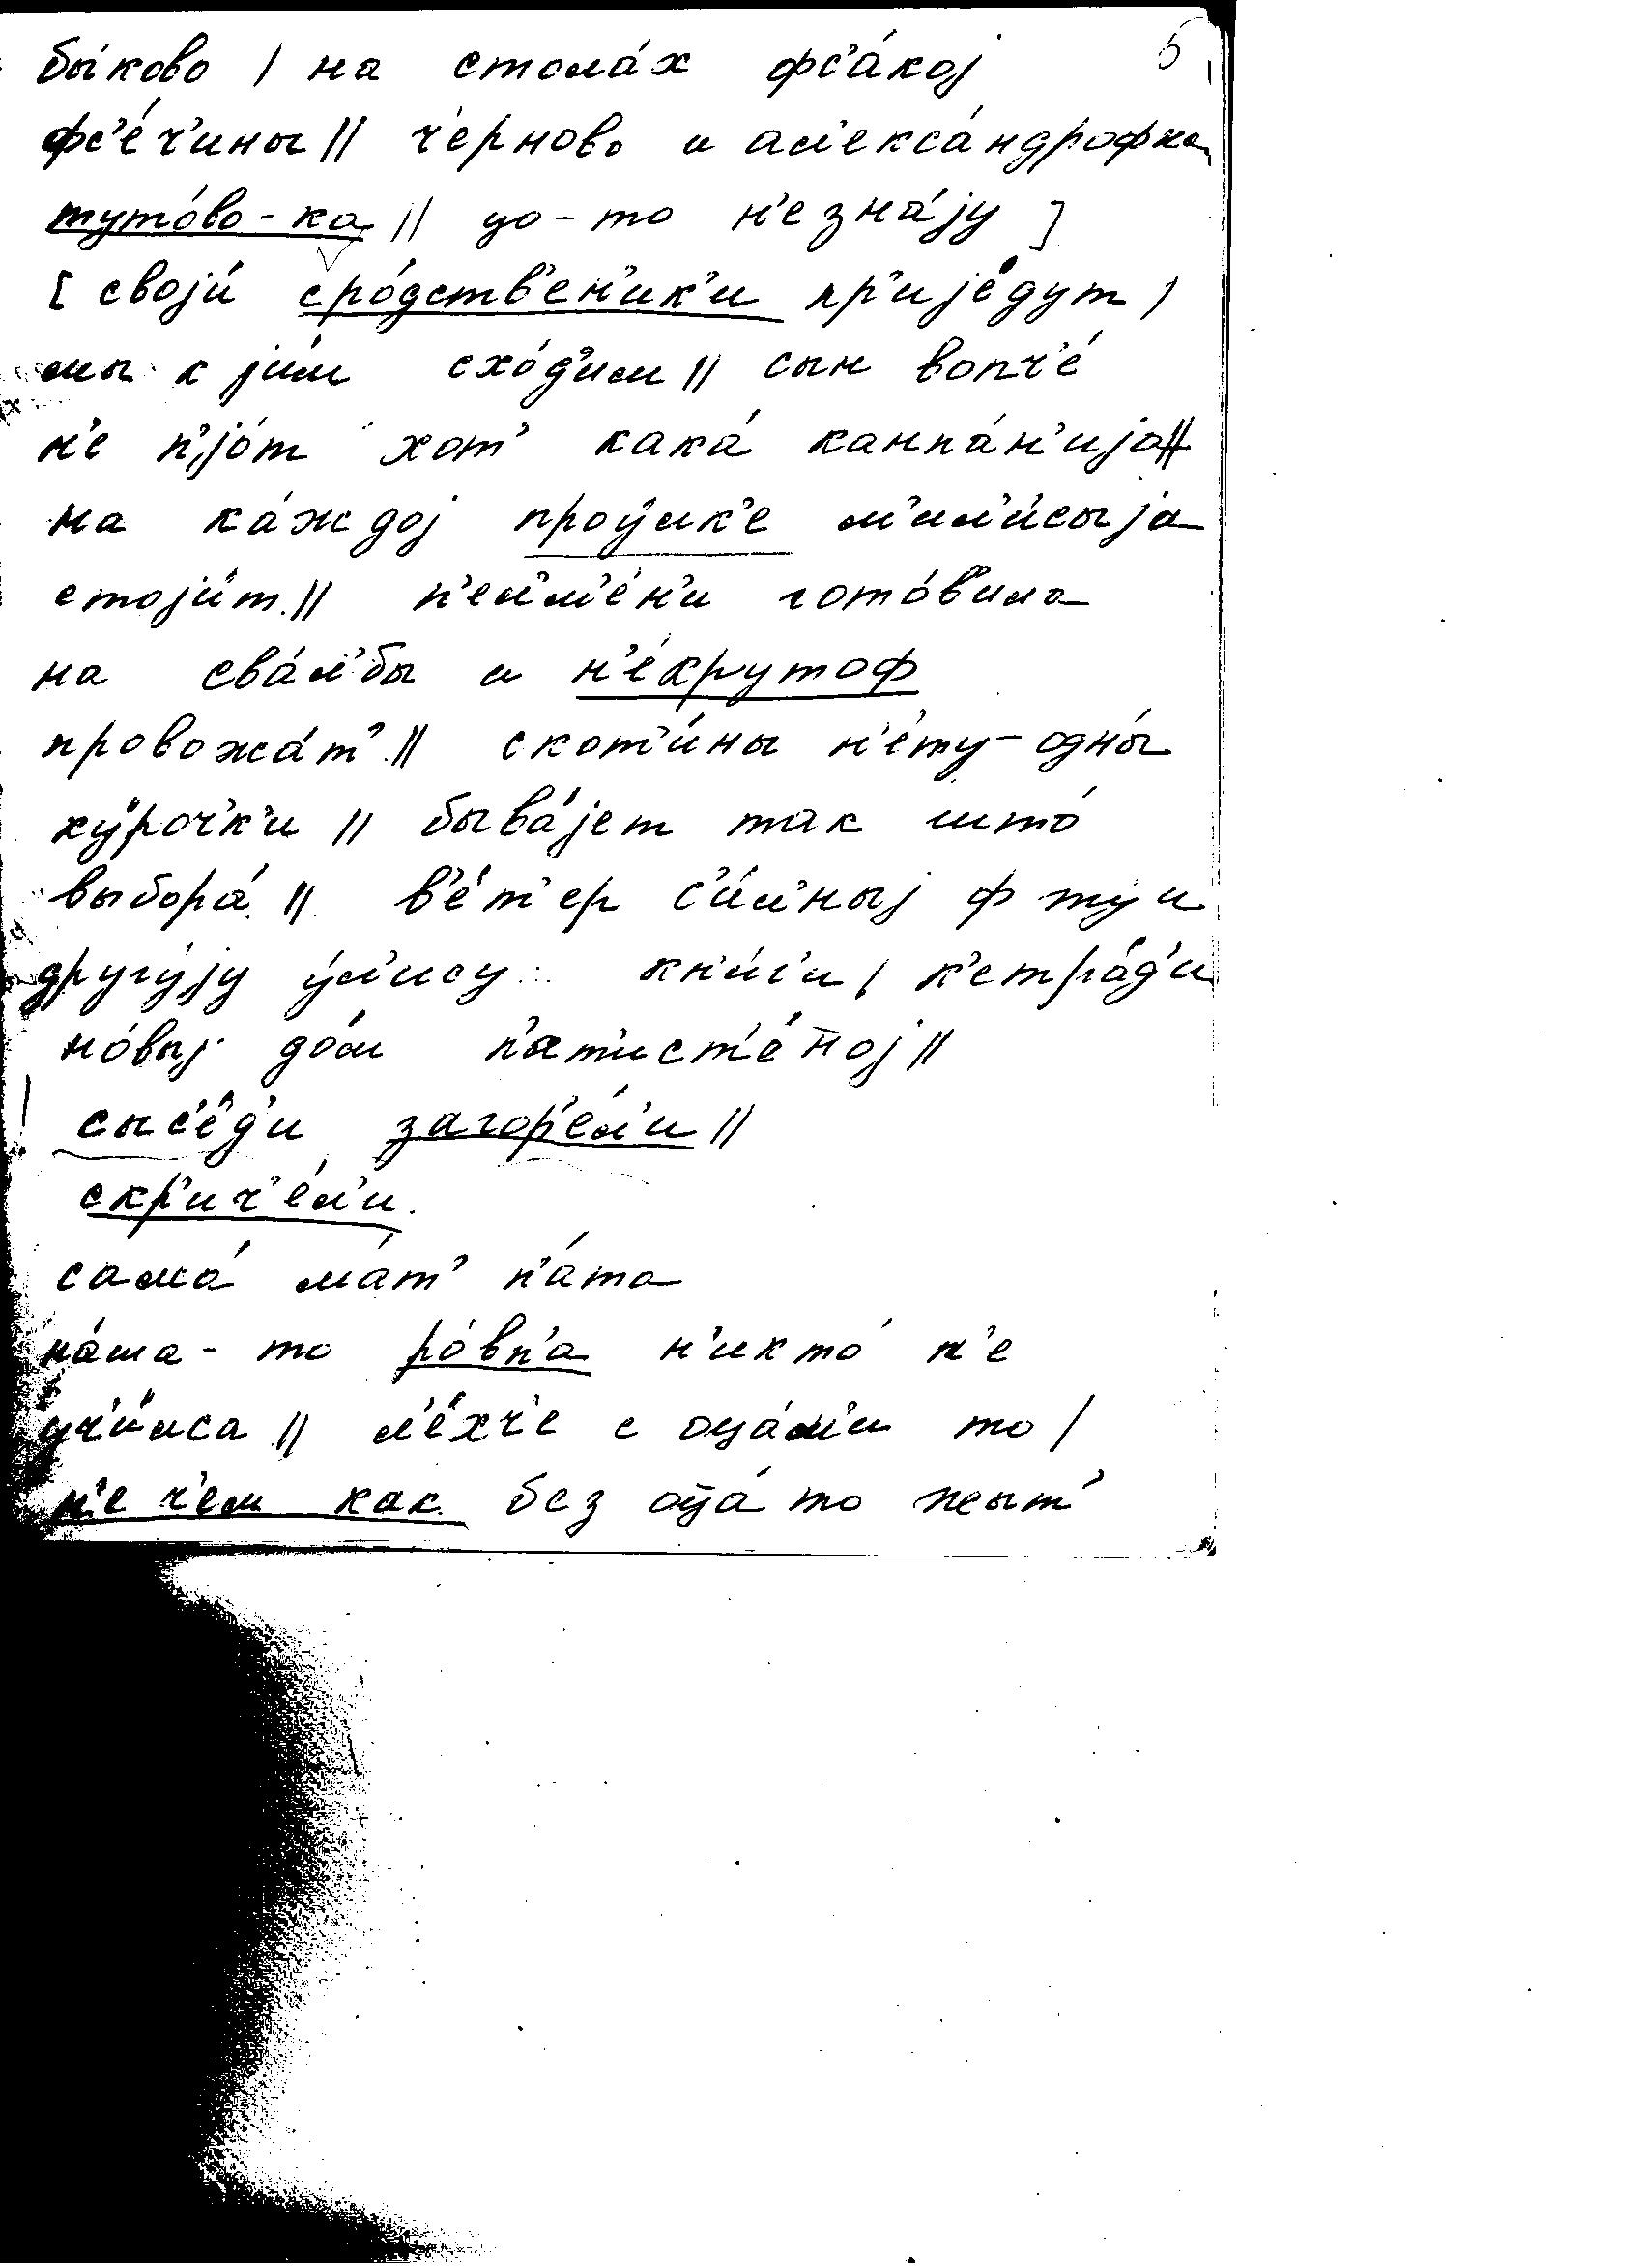 5
бы́ково / на стола́х фс'а́кој
фс'е́ч'ины // ч'ерново и ал'екса́ндрофка
туто́во-ка // цо-то н'е зна́ју ]
[ своји́ сро́дств'ен'ик'и пр'ије́дут /
мы к ји́м схо́д'им // сын вопч'е́
н'е п'јо́т хот' кака́ канпа́н'ија //
на ка́ждој проу́лк'е м'ил'и́сыја
стоји́т // п'ел'м'е́н'и гото́в'ила
на сва́л'бы и н'е́крутоф
провожа́т' // скот'и́ны н'е́ту - одны́
ку́роч'к'и // быва́јет так што́
выбора́ // в'е́т'ер с'и́л'ныј ф ту и
другу́ју у́л'ису кн'и́г'и / т'етра́д'и
но́выј до́м п'ат'ист'е́н̄ој //
сыс'е́д'и загор'е́л'и //
скр'ич'е́л'и.
сама́ ма́т' п'а́та
на́ша-то ро́вн'а н'икто́ н'е
уч'и́лса // л'е́хч'е с оца́м'и то /
н'е ч'ем как без оц̄а́ то жыт'